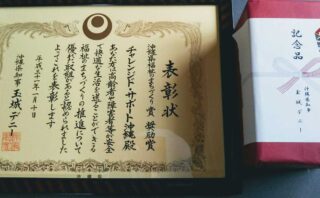 表彰状
沖縄県福祉のまちづくり賞 奨励賞
チャレンジド・サポート沖縄 殿
あなたは高齢者や障害者等が安全
で快適な生活を送ることができる
福祉のまちづくりの推進について
優れた取組があると認められました
よってこれを表彰します
平成三十一年一月十日
沖縄県知事 玉城デニー
記念品
沖縄県知事
玉城デニー